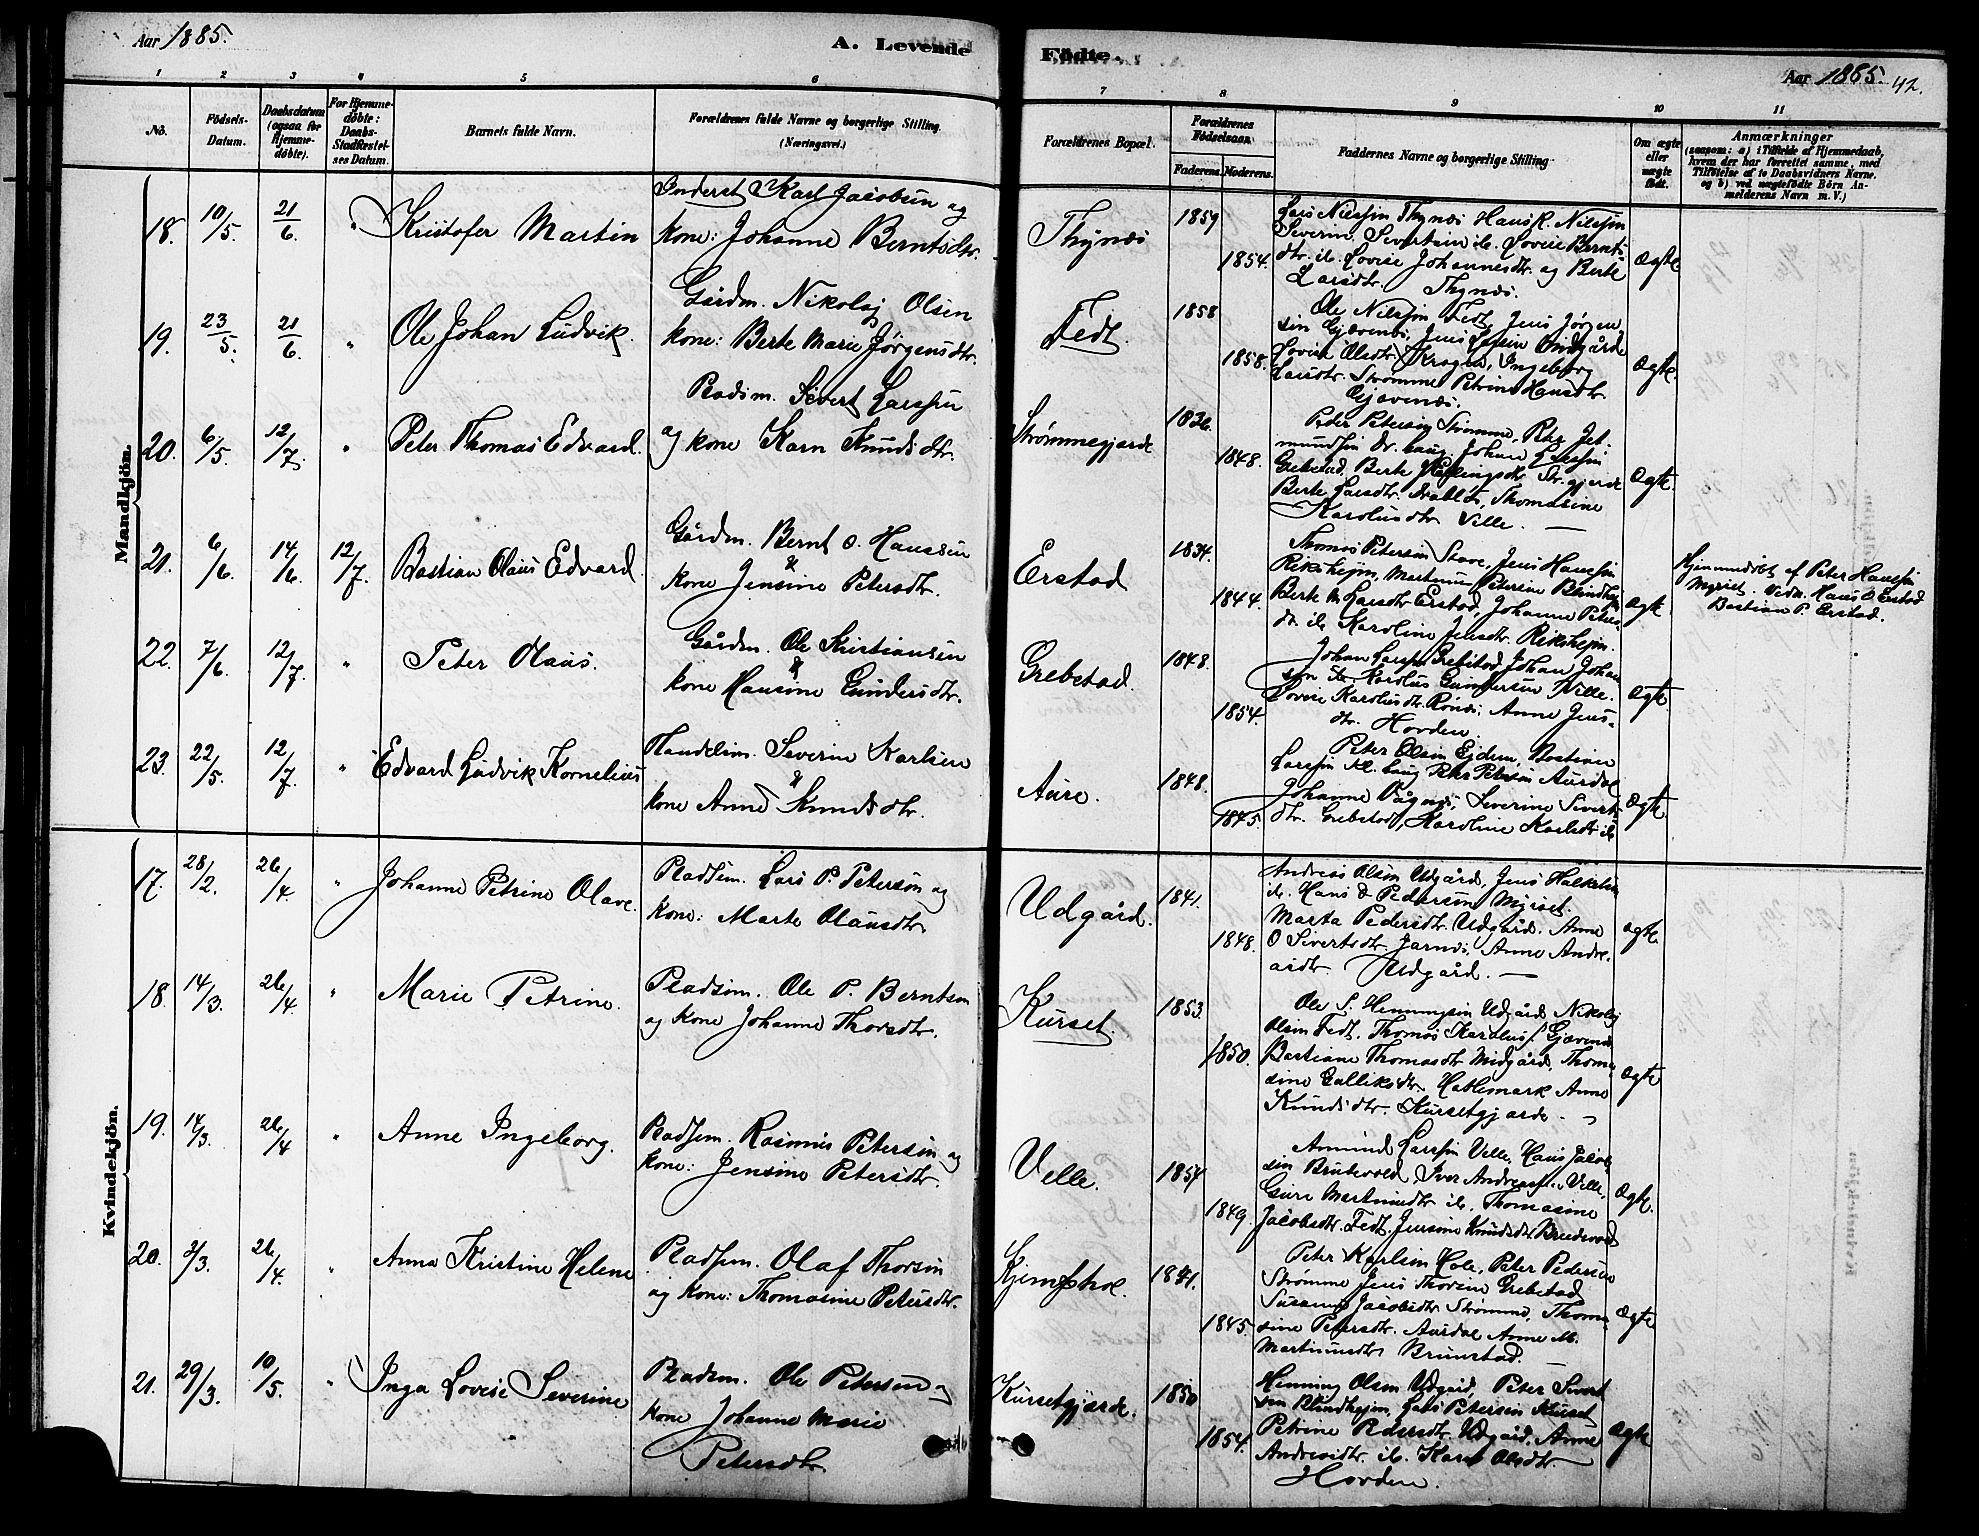 Aar 1885.
A. Levende
Födte.
Aar 1885.
42.
1 2 3 4 5 6 7 8 9 10 11
No.
Födsels-Datum.
Daabsdatum (ogsaa for Hjemme-döbte).
For Hjemme-döbte: Daabs-Stadfæstel-ses Datum.
Barnets fulde Navn.
Forældrenes fulde Navne og borgerlige Stilling. (Næringsvei.)
Forældrenes Bopæl.
Forældrenes Födselsaar.
Faderens. Moderens.
Faddernes Navne og borgerlige Stilling.
Om ægte eller uægte födt.
Anmærkninger
(saasom: a) i Tilfælde af Hjemmedaab, hvem der har forrettet samme, med Tilföielse af to Daabsvidners Navne, og b) ved uægtefödte Börn An-melderens Navn m. V.)
Mandkjön.
18. 10/5. 21/6. " Kristofer Martin
Inderst Karl Jacobsen og
kone: Johanne Berntsdtr.
Thynæs 1859 1854.
Lars Nilssen Thynæs Hans K. Nilssen
Severin Severtsen ib. Lovise Bernts-
dtr. ib. Lovise Johannesdtr og Berte
Larsdtr. Thynæs.
Ægte
19. 23/5. 21/6. " Ole Johan Ludvik.
Gårdm. Nikolaj Olsen
kone: Berte Marie Jørgensdtr.
Fedt. 1858 1858.
Ole Nilssen Fedt, Jens Jørgen
sen Gjævenes, Jens Larsen Midgårde
Lovise Olsdtr. Krogen, Ingeborg
Larsdtr. Strømme Petrine Hansdtr.
Gjævenæs.
Ægte.
20. 6/5. 12/7. " Peter Thomas Edvard.
Pladsm. Sivert Larssen
og kone Karn Knudsdtr.
Strømmegjærde 1836. 1848.
Peder Petersen Strømme,
Johan Larssen
Grebstad. Berte
Berte Larsdtr. Thomasine
Karolusdtr Velle.
Ægte.
21. 6/6. 14/6. 12/7. Bastian Olaus Edvard
Gårdm. Bernt O. Hanssen
&
kone Jensine Petersdtr.
Erstad 1834. 1844.
Thomas Petersen Stave, Jens Hanssen
Riksheim, Martinus Petersen Blindheim
Berte M. Larsdtr Erstad, Johanne Peters-
dtr ib. Karoline Jensdtr. Riksheim.
Ægte.
Hjemmedøbt af Peter Hanssen
Myrset. Vidn. Hans O Erstad
Bastian P. Erstad.
22. 7/6. 12/7. " Peter Olaus.
Gårdm. Ole Kristiansen
&
kone Hansine Gundersdtr.
Grebstad. 1848. 1854.
Johan Larssen Grebstad, Johan Johan
sen ib. Karolus Gundersen Velle.
Lovise Karolusdtr. Anne Jens-
dtr. Hovden.
Ægte
23. 22/5. 12/7. " Edvard Ludvik Kornelius
Handelsm. Severin Karlsen
&
kone Anne Knudsdtr.
Aure. 1848. 1845.
Peter Olsen Ejdem, Bastian
Larssen Peter Petersen Aurdal
Johanne Severine Siverts
dtr. Grebstad, Karoline Karlsdtr ib
Ægte
Kvindekjön.
17. 28/2. 26/4. " Johanne Petrine Olave.
Pladsem. Lars P. Petersen og
kone: Marte Olausdtr.
Udgård. 1841. 1848.
Andreas Olsen Udgård, Jens
ib. Hans P. Pedersen Myrset.
Marta Pedersdtr. Udgård. Anne
O Sivertsdtr. Jarnæs. Anne Andre-
asdtr. Udgård.
ægte
18. 14/3. 26/4. " Marie Petrine.
Pladsem. Ole P. Berntsen
og kone Johanne Thorsdtr.
Kurset. 1853. 1850.
Ole S. Henningsen Udgård Nikolaj
Olsen Fedt. Thomas Karolus. Gjævenæs
Bastiane Thomasdtr Midgård, Thoma-
sine Hatlemark Anne
Knudsdtr. Kursetgjærde.
Ægte
19. 14/3. 26/4. " Anne Ingeborg.
Pladsem. Rasmus Petersen og
kone: Jensine Petersdtr.
Velle. 1854 1849.
Amund Larssen Velle, Hans Jacob-
sen Brudevold Iver Andreass. Velle,
Guri Martinusdtr ib. Thomasine
Jacobsdtr. Fedt. Jensine Knudsdtr. Brudevold
Ægte.
20. 2/3. 26/4. " Anna Kristine Helene
Pladsem. Olaf Thorsen
og kone: Thomasine Petersdtr.
1841. 1845.
Peter Karlsen Hole, Peter Pedersen
Strømme Jens Thorsen Grebstad
Susanne Jacobsdtr. Strømme, Thoma-
sine Petersdtr. Aurdal Anne M.
Martinusdtr Brunstad.
Ægte
21. 29/3. 10/5. " Inga Lovise Severine
Pladsm. Ole Petersen og
kone Johanne Marie
Petersdtr.
Kursetgjærde. 1850 1854.
Henning Olsen Udgård, Peter Sivert
sen Blindheim, Lars Petersen Kurset
Petrine Pedersdtr. Udgård, Anne
Andreasdtr. ib. Karen Olsdtr.
Hovden.
Ægte